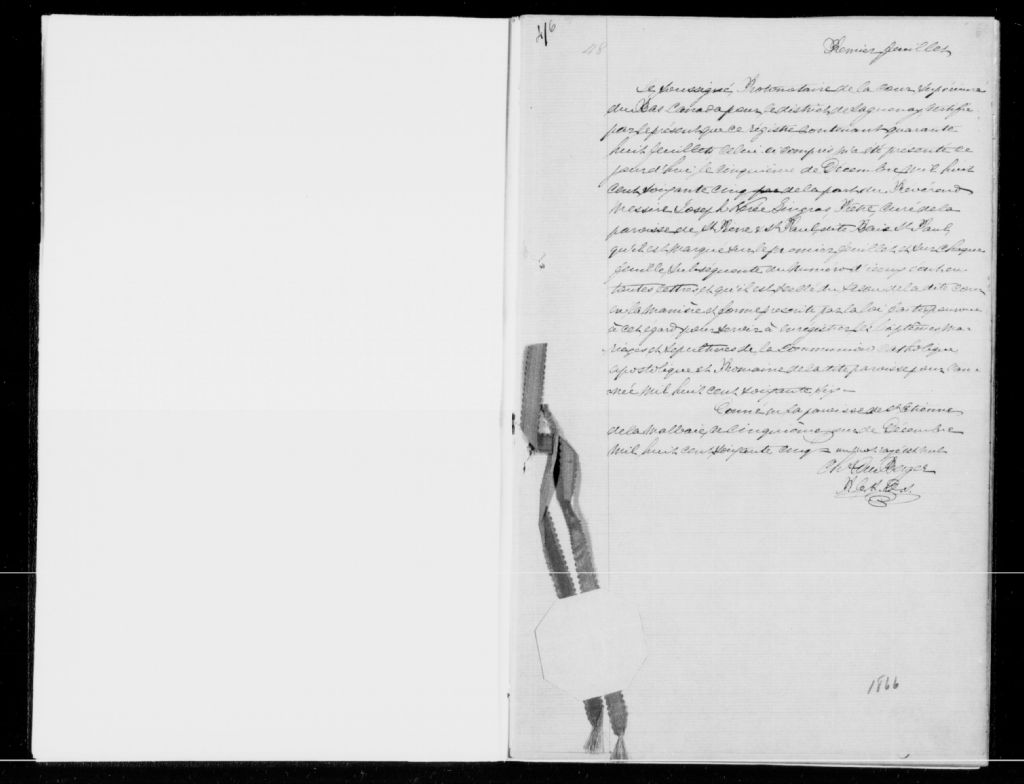 48
Premier feuillet
Le Soussigné, Protonotaire de la cour Supérieure
du Bas Canada pour le district de Saguenay Certifie
par le présent que ce régistre Contenant quarante
huit feuillets celui ci compris m'a été présenté ce
jour d'hui le cinquième de Décembre mil huit
cent soixante cinq par de la part du Révérend
Messire Joseph Gingras Prêtre, curé de la
paroisse de St Pierre & St Paul, dite Baie St Paul,
qu'il est marqué sur le premier feuillet et sur chaque
feuille subséquente du numéro d'iceux
toutes lettres, et qu'il est scellé du sceau de la dite cour
en la manière et forme prescrite par la loi
à cet égard pour servir à enregistrer les Baptêmes Ma-
riages et Sépultures de la Communion Catholique
apostolique et Romaine de la dite paroisse pour l'an-
née mil huit cent soixante six —
Donné en la paroisse de St Etienne
de la Malbaie, le cinquième jour de Décembre
mil huit cent soixante cinq — un mot rayé est nul
Chs Du Berger
1866